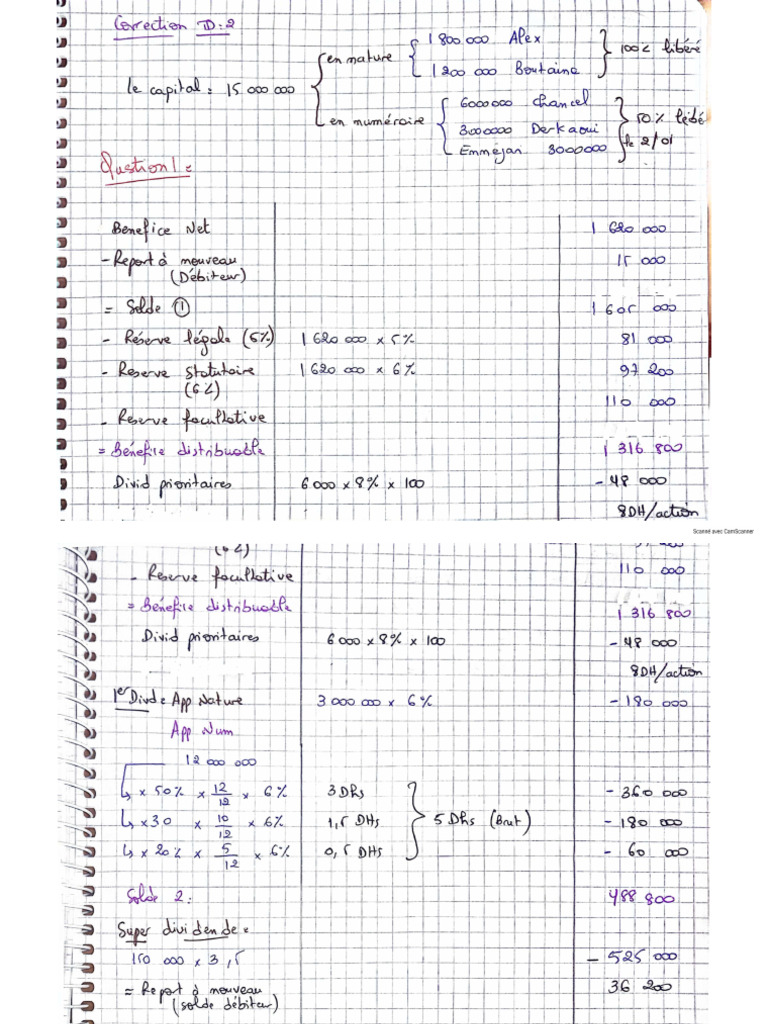 Correction TD:2
le capital : 15 000 000
en nature
1 800.000 Alex
1 200 000 Boutaina
100% libéré
en numéroire
6000000 Chancel
3000000 Derkaoui
Emméjan 3000000
50% libé
le 2/01
Question 1 :
Benefice Net 1 620 000
- Report à nouveau 15 000
(Débiteur)
= Solde ① 1 605 000
- Réserve légale (5%) 1 620 000 x 5% 81 000
- Reserve statutaire 1 620 000 x 6% 97 200
(6%)
- Reserve facultative 110 000
= Bénéfice distribuable 1 316 800
Divid prioritaires 6 000 x 8% x 100 - 48 000
8DH/action
Scanné avec CamScanner
(6%)
- Reserve facultative 110 000
= Bénéfice distribuable 1 316 800
Divid prioritaires 6 000 x 8% x 100 - 48 000
8DH/action
1er Divd: App Nature 3 000 000 x 6% - 180 000
App Num
12 000 000
x 50% x 12/12 x 6% 3 Dhs - 360 000
x 30 x 10/12 x 6% 1,5 DHs 5 Dhs (Brut) - 180 000
x 20% x 5/12 x 6% 0,5 DHs - 60 000
Solde 2: 488 800
Super dividende:
150 000 x 3,5 - 525 000
= Report à nouveau 36 200
(solde débiteur)